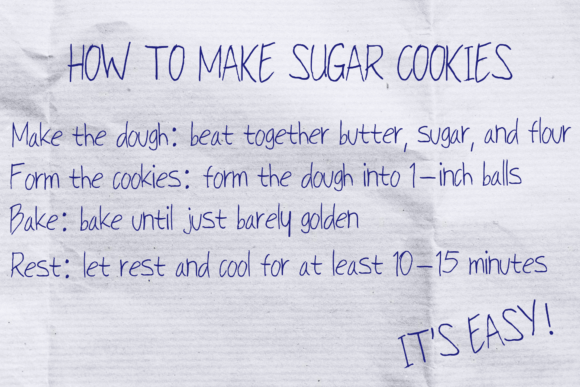 HOW TO MAKE SUGAR COOKIES
Make the dough: beat together butter, sugar, and flour
Form the cookies: form the dough into 1-inch balls
Bake: bake until just barely golden
Rest: let rest and cool for at least 10-15 minutes
IT'S EASY!